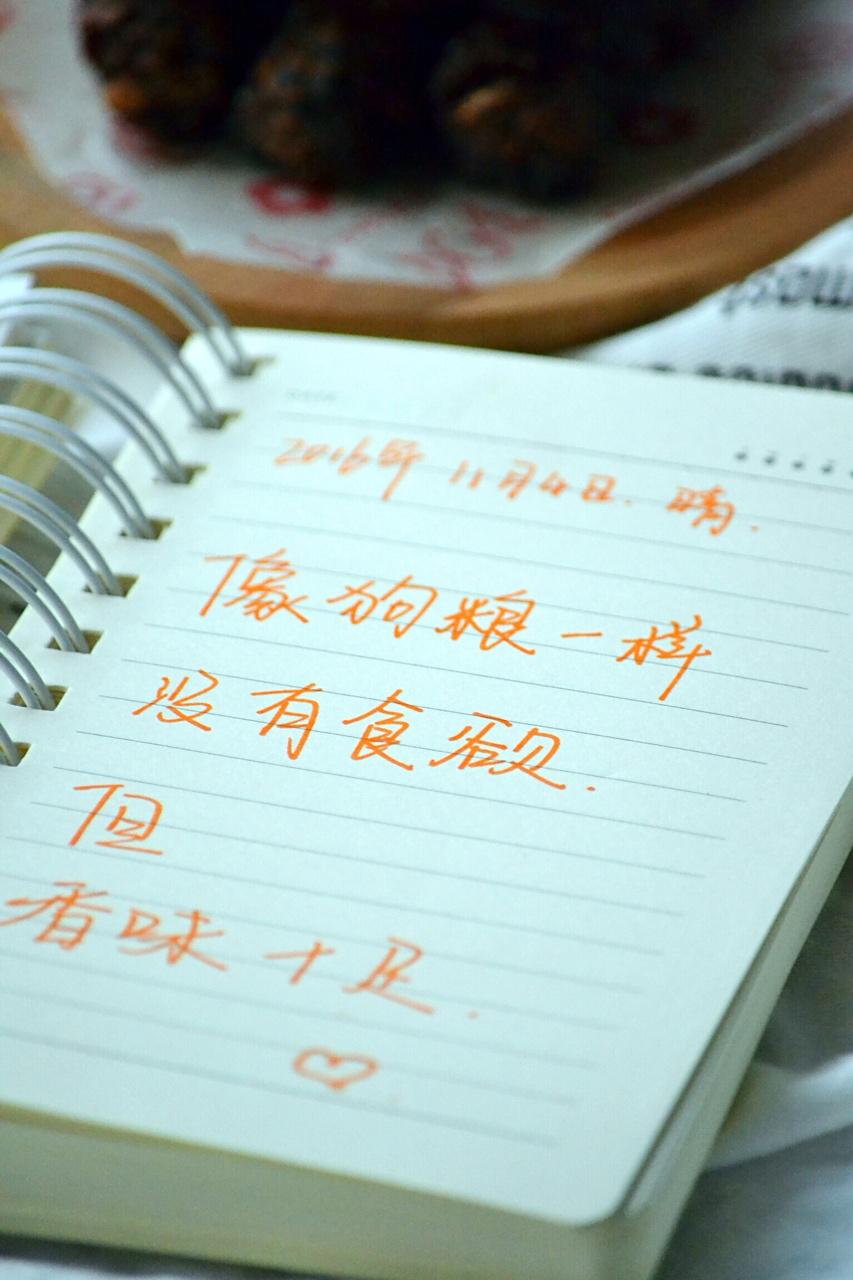 DATE
2016年 11月4日. 晴.
像狗粮一样
没有食欲.
但
香味十足.